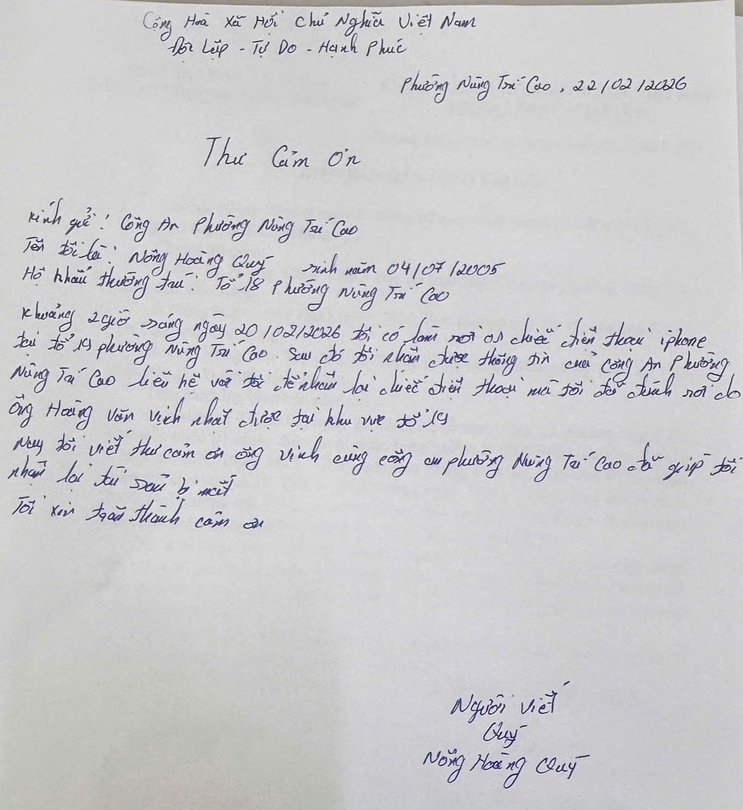 Cộng Hoà Xã Hội Chủ Nghĩa Việt Nam
Độc Lập - Tự Do - Hạnh Phúc
Phường Nùng Trí Cao, 22/02/2026
Thư Cảm Ơn
Kính gửi: Công An Phường Nùng Trí Cao
Tên tôi là: Nông Hoàng Quý sinh năm 04/07/2005
Hộ khẩu thường trú: Tổ 18 Phường Nùng Trí Cao
Khoảng 2 giờ sáng ngày 20/02/2026 tôi có làm rơi chiếc điện thoại iphone
tại tổ 19 phường Nùng Trí Cao. Sau đó tôi nhận được thông tin của công An Phường
Nùng Trí Cao liên hệ với tôi để nhận lại chiếc điện thoại mà tôi đã đánh rơi do
ông Hoàng văn vinh nhặt được tại khu vực tổ 19
Nay tôi viết thư cảm ơn ông vinh cùng công an phường Nùng Trí Cao đã giúp tôi
nhận lại tài sản bị mất
Tôi xin trân thành cảm ơn
Người viết
Quý
Nông Hoàng Quý